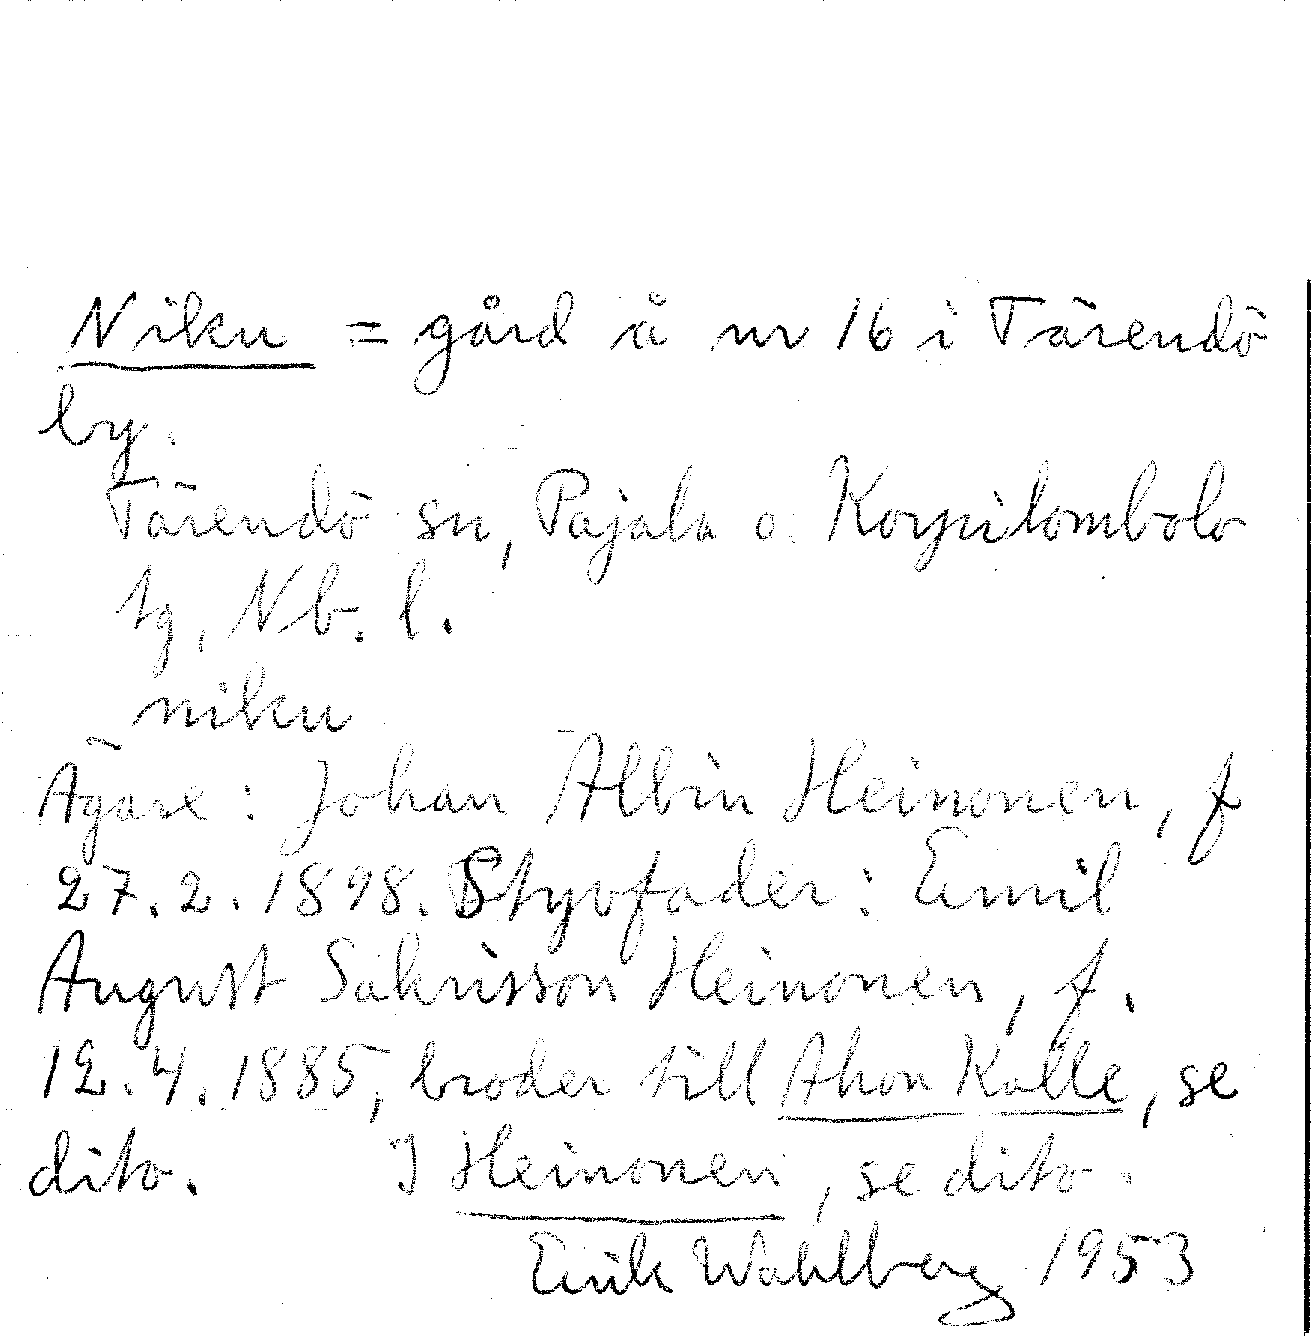 Niku = gård å nr 16 i Tärendö
by.
Tärendö sn, Pajala o. Korpilombolo
tg, Nb. l.
niku
Ägare: Johan Albin Heinonen, f
27.2.1898. Styvfader: Emil
August Sakrisson Heinonen, f.
12.4.1885, broder till Ahon Kalle, se
dito. I Heinonen, se dito.
Erik Wahlberg 1953